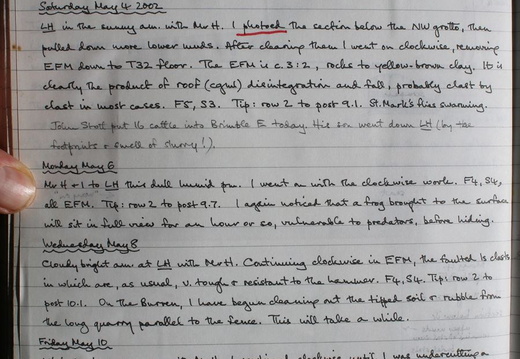 Saturday May 4 2002
LH in the sunny am. with Mr H. I photoed the section below the NW grotto, then
pulled down more lower muds. After clearing them I went on clockwise, removing
EFM down to T32 floor. The EFM is c.3:2, rocks to yellow-brown clay. It is
clearly the product of roof (cgml) disintegration and fall, probably clast by
clast in most cases. F5, S3. Tip: row 2 to post 9.1. St.Mark's flies swarming.
John Stott put 16 cattle into Brimble E today. His son went down LH (by the
footprints & smell of slurry!).
Monday May 6
Mr H & I to LH this dull humid pm. I went on with the clockwise work. F4, S4,
all EFM. Tip: row 2 to post 9.7. I again noticed that a frog brought to the surface
will sit in full view for an hour or so, vulnerable to predators, before hiding.
Wednesday May 8
Cloudy bright am. at LH with Mr H. Continuing clockwise in EFM, the faulted ls clasts
in which are, as usual, v. tough & resistant to the hammer. F4, S4. Tip: row 2 to
post 10.1. On the Burren, I have begun cleaning out the tipped soil & rubble from
the long quarry parallel to the fence. This will take a while.
Friday May 10
clockwise until I was undercutting a